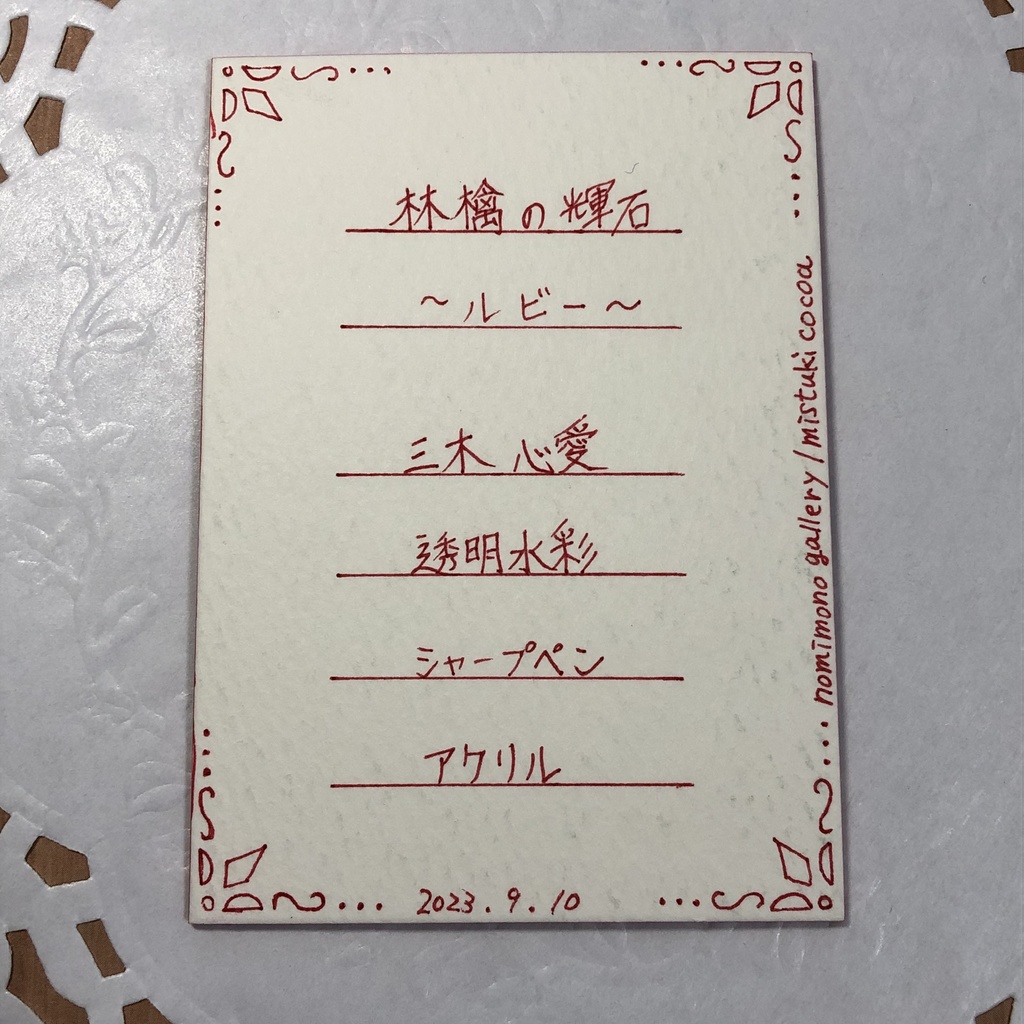 林檎の輝石
～ルビー～
三木 心愛
透明水彩
シャープペン
アクリル
2023.9.10
nomimono gallery/mistuki cocoa